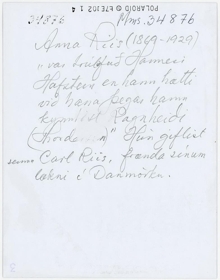 POLAROID ® 87E102 1 4
34876
Mms. 34876
Anna Riis (1869-1929)
"var trúlofuð Hannesi
Hafstein en hann hætti
við hana þegar hann
kynntist Ragnheiði
" Hún giftist
Carl Riis, frænda sínum
lækni í Danmörku.